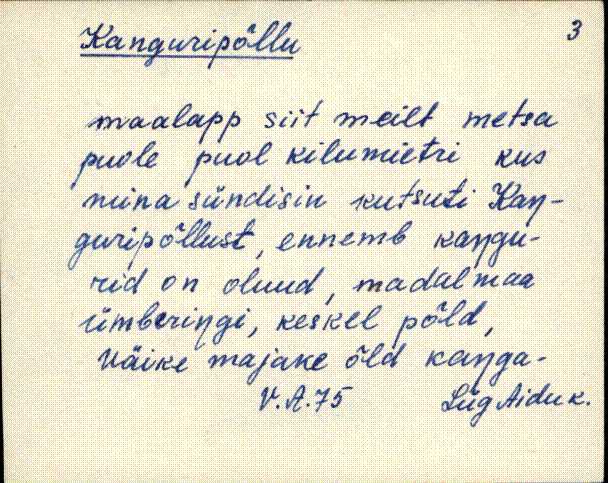 3
Kanguripõllu
maalapp siit meilt metsa
puole puol kilumietri kus
mina sündisin kutsuti Kaŋ-
guripõllust, ennemb kaŋgu-
rid on oluud, madal maa
ümberiŋgi, keskel põld,
väike majake õld kaŋga-
V.A.75 Lüg Aidu k.